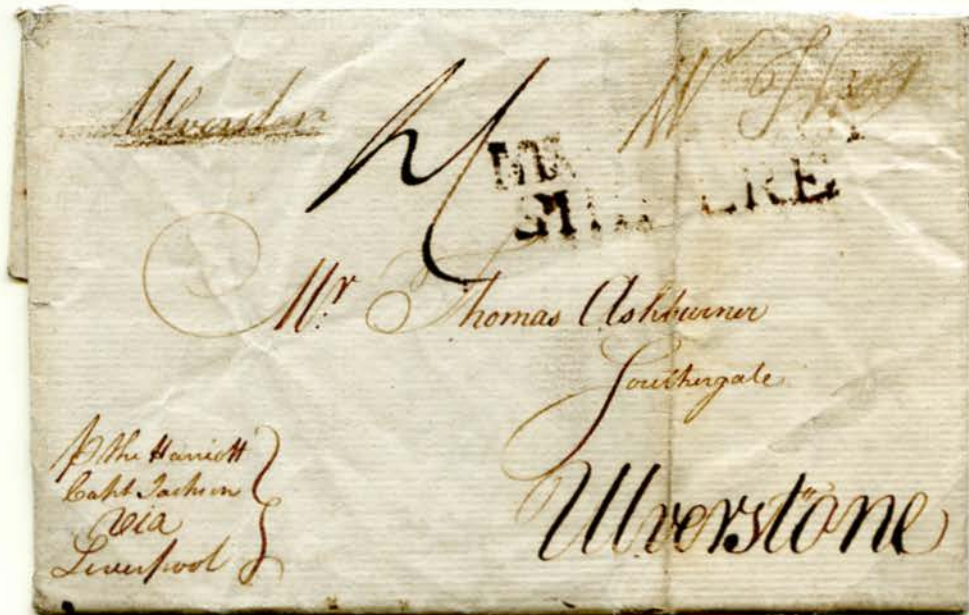 Ulverston
Mr Thomas Ashburner
Southergate
Ulverstone
P the Harriott
Capt Jackson
via
Liverpool